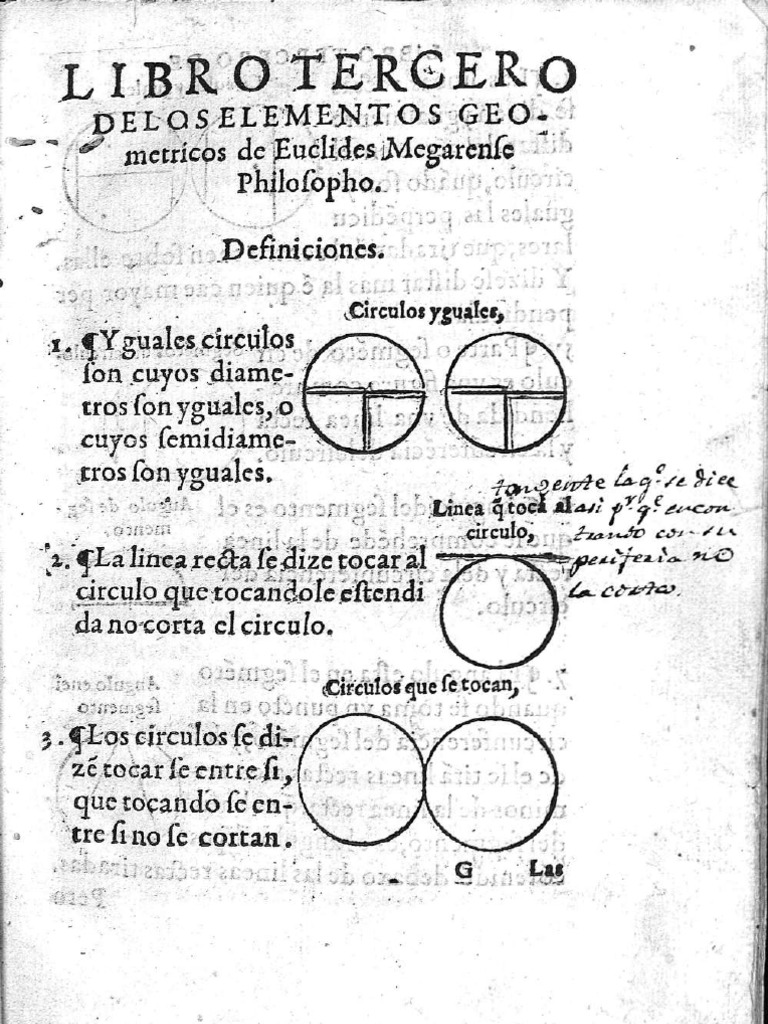 LIBRO TERCERO
DE LOS ELEMENTOS GEO-
metricos de Euclides Megarenſe
Philoſopho.
Definiciones.
Circulos yguales,
1. ¶Yguales circulos
ſon cuyos diame-
tros ſon yguales, o
cuyos ſemidiame-
tros ſon yguales.
tangente la qͤ. se dice
Linea q̃ toca al
asi pʳ. qͤ. encon
circulo,
trando con su
periferia no
la corta.
2. ¶La linea recta ſe dize tocar al
circulo que tocandole eſtendi
da no corta el circulo.
Circulos que ſe tocan,
3. ¶Los circulos ſe di-
zẽ tocar ſe entre ſi,
que tocando ſe en-
tre ſi no ſe cortan.
G Las